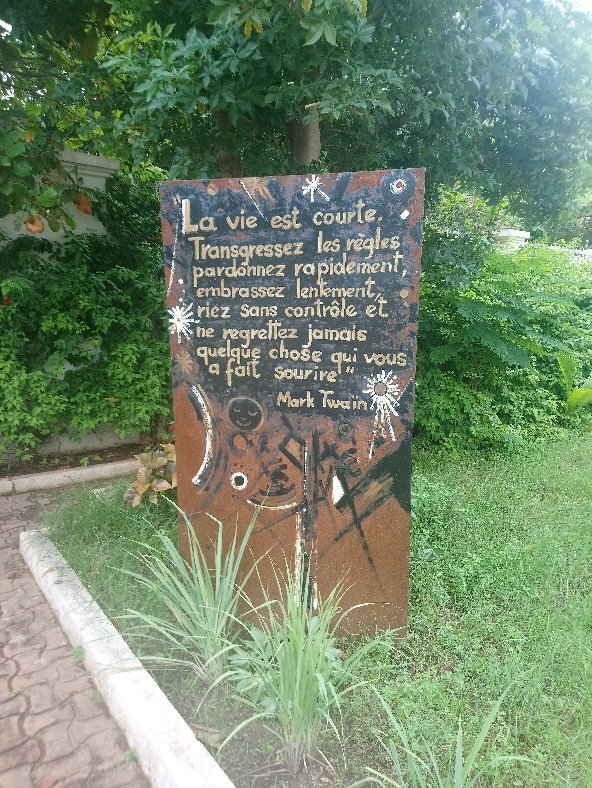 "La vie est courte.
Transgressez les règles
pardonnez rapidement,
embrassez lentement,
riez sans contrôle et
ne regrettez jamais
quelque chose qui vous
a fait sourire"
Mark Twain